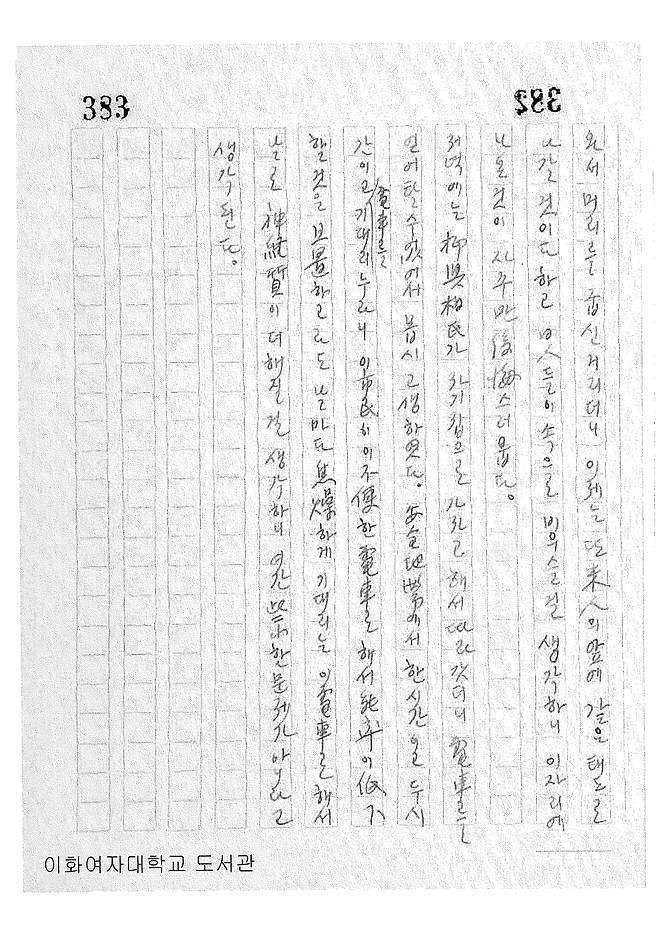 383
382
와서 머리를 굽신거리더니 이제는 또 米人의 앞에 같은 태도로
나갈 것이다 하고 日人들이 속으로 비우슬걸 생각하니 이자리에
나온것이 자주만 後悔스러웁다。
저녁에는 柳興相氏가 자기집으로 가자고 해서 따라갓더니 電車를
얻어탈수없어서 몹시 고생하엿다。安全地帶에서 한시간 을 두시
간이고 電車를 기대리누라니 이 市民히 이 不便한 電車로 해서 能率이 低下
할것은 므릏하고라도 날마다 焦燥하게 기대리는 이 電車로 해서
날로 神經質이 더해질걸 생각하니 여간 些小한 문제가 아니라고
생각된다。
이화여자대학교 도서관